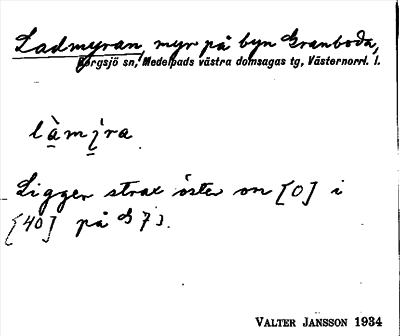 Ladmyran, myr på byn Granboda,
Borgsjö sn, Medelpads västra domsagas tg, Västernorrl. l.
làmi̯ra
Ligger strax öster om [0] i
[40] på G 73.
VALTER JANSSON 1934